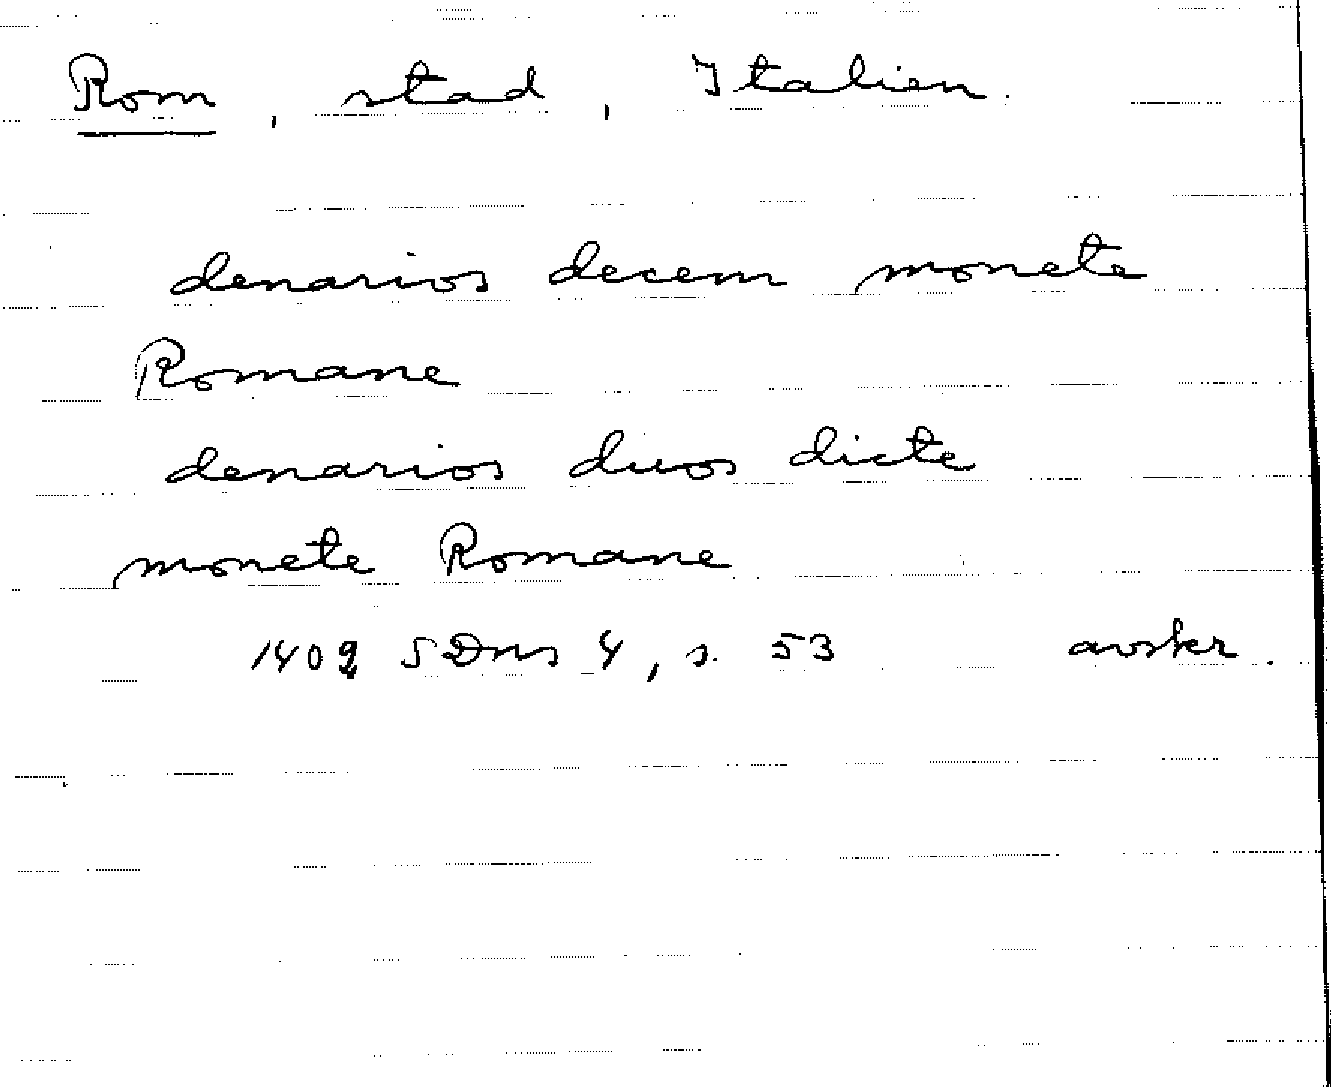 Rom, stad, Italien.
denarios decem monete
Romane
denarios duos dicte
monete Romane
1409 SDns 4, s. 53 avskr.